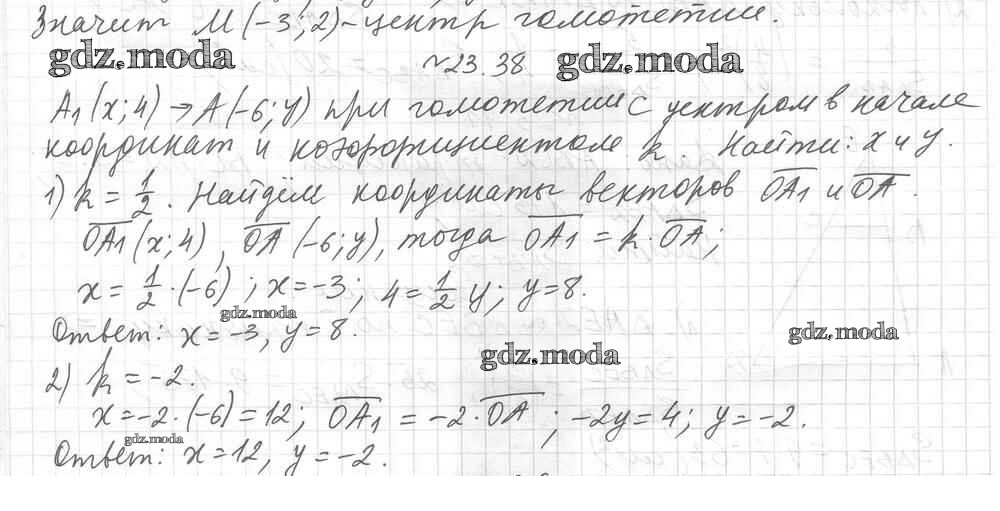 Значит M(-3; 2) - центр гомотетии.
gdz.moda №23.38 gdz.moda
A₁(x; 4) → A(-6; y) при гомотетии с центром в начале
координат и коэффициентом k Найти: x и y.
1) k = 1/2. Найдём координаты векторов OA₁ и OA.
OA₁(x; 4), OA(-6; y), тогда OA₁ = k · OA;
x = 1/2 · (-6); x = -3; 4 = 1/2 y; y = 8.
gdz.moda
Ответ: x = -3, y = 8.
gdz.moda
gdz.moda
2) k = -2.
x = -2 · (-6) = 12; OA₁ = -2 · OA; -2y = 4; y = -2.
gdz.moda
Ответ: x = 12, y = -2.